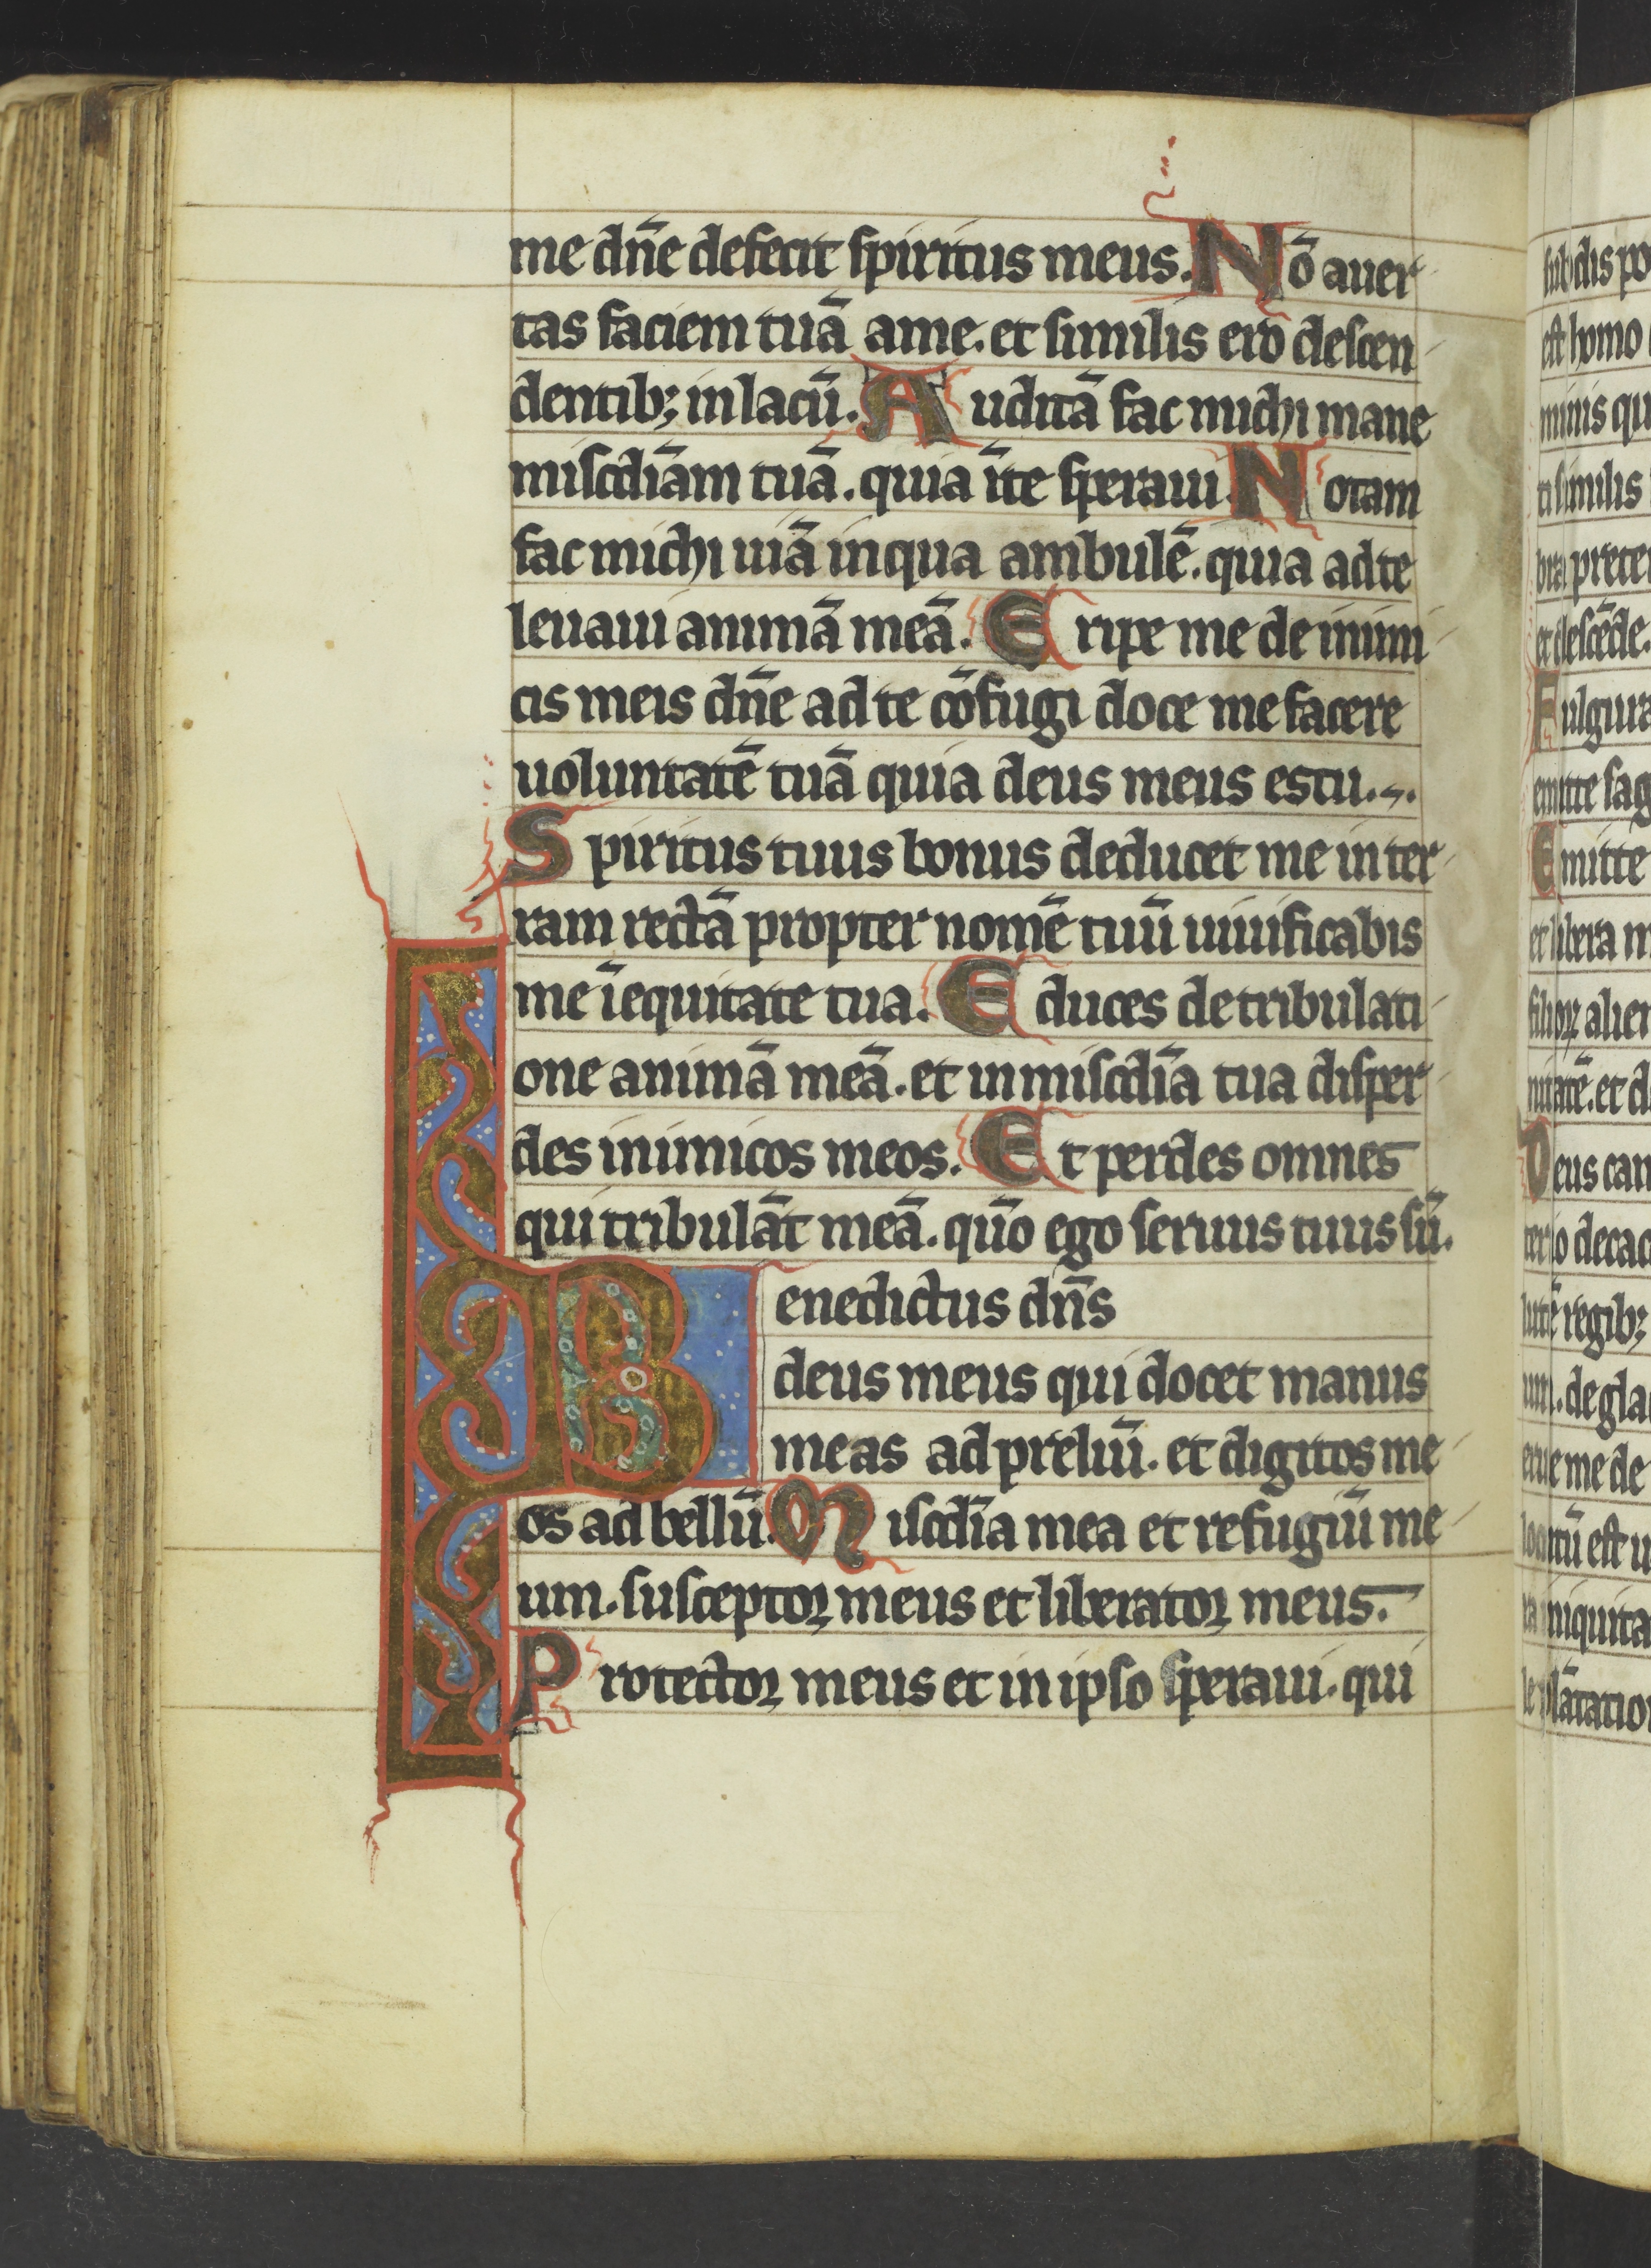 me dn̄e defecit spiritus meus. Nō auer
tas faciem tuā ame. et similis ero descen
dentibꝫ in lacū. Auditā fac michi mane
misc̄diam tuā. quia īte speraui. Notam
fac michi uiā inqua ambulē. quia adte
leuaui animā meā. Eripe me de inimi
cis meis dn̄e ad te cōfugi doce me facere
uoluntatē tuā quia deus meus estu.
Spiritus tuus bonus deducet me in ter
ram rectā propter nomē tuū uiuificabis
me īequitate tua. Educes de tribulati
one animā meā. et in misc̄dia tua disper
des inimicos meos. Et perdes omnes
qui tribulāt meā. quō ego seruus tuus sū.
Benedictus dn̄s
deus meus qui docet manus
meas ad preliū. et digitos me
os ad bellū. Misc̄dia mea et refugiū me
um. susceptor meus et liberator meus.
Protector meus et in ipso speraui. qui
sub dis po
est homo
minis qu
ti similis
bra prete
et descēde.
Fulgura
emitte sag
Emitte
et libera m
filioꝝ alien
nitatē. et d
Deus can
terio decac
lutē regibꝫ
um. de gla
erue me de
locutū est u
iniquita
le plātatio